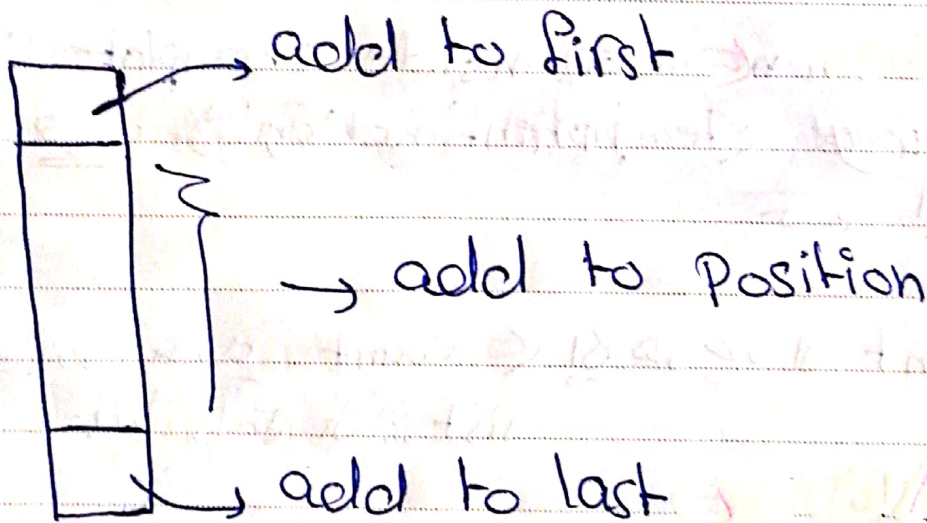 add to first
add to Position
add to last